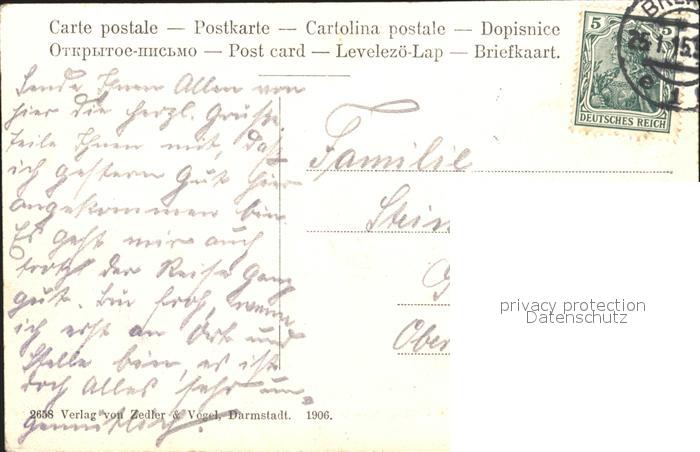 Carte postale — Postkarte — Cartolina postale — Dopisnice
Открытое-письмо — Post card — Levelezö-Lap — Briefkaart.
5 5
DEUTSCHES REICH
BRE
25.1 15
Sende Ihnen Allen von
hier die herzl. Grüße
teile Ihnen mit, daß
ich gestern Gut hier
angekommen bin.
Es geht mir auch
trotz der Reise ganz
gut. Bin froh, wenn
ich erst an Ort und
Stelle bin, es ist
doch Alles sehr un-
gemütlich.
Familie
Stein
Ober
privacy protection
Datenschutz
2658 Verlag von Zedler & Vogel, Darmstadt. 1906.